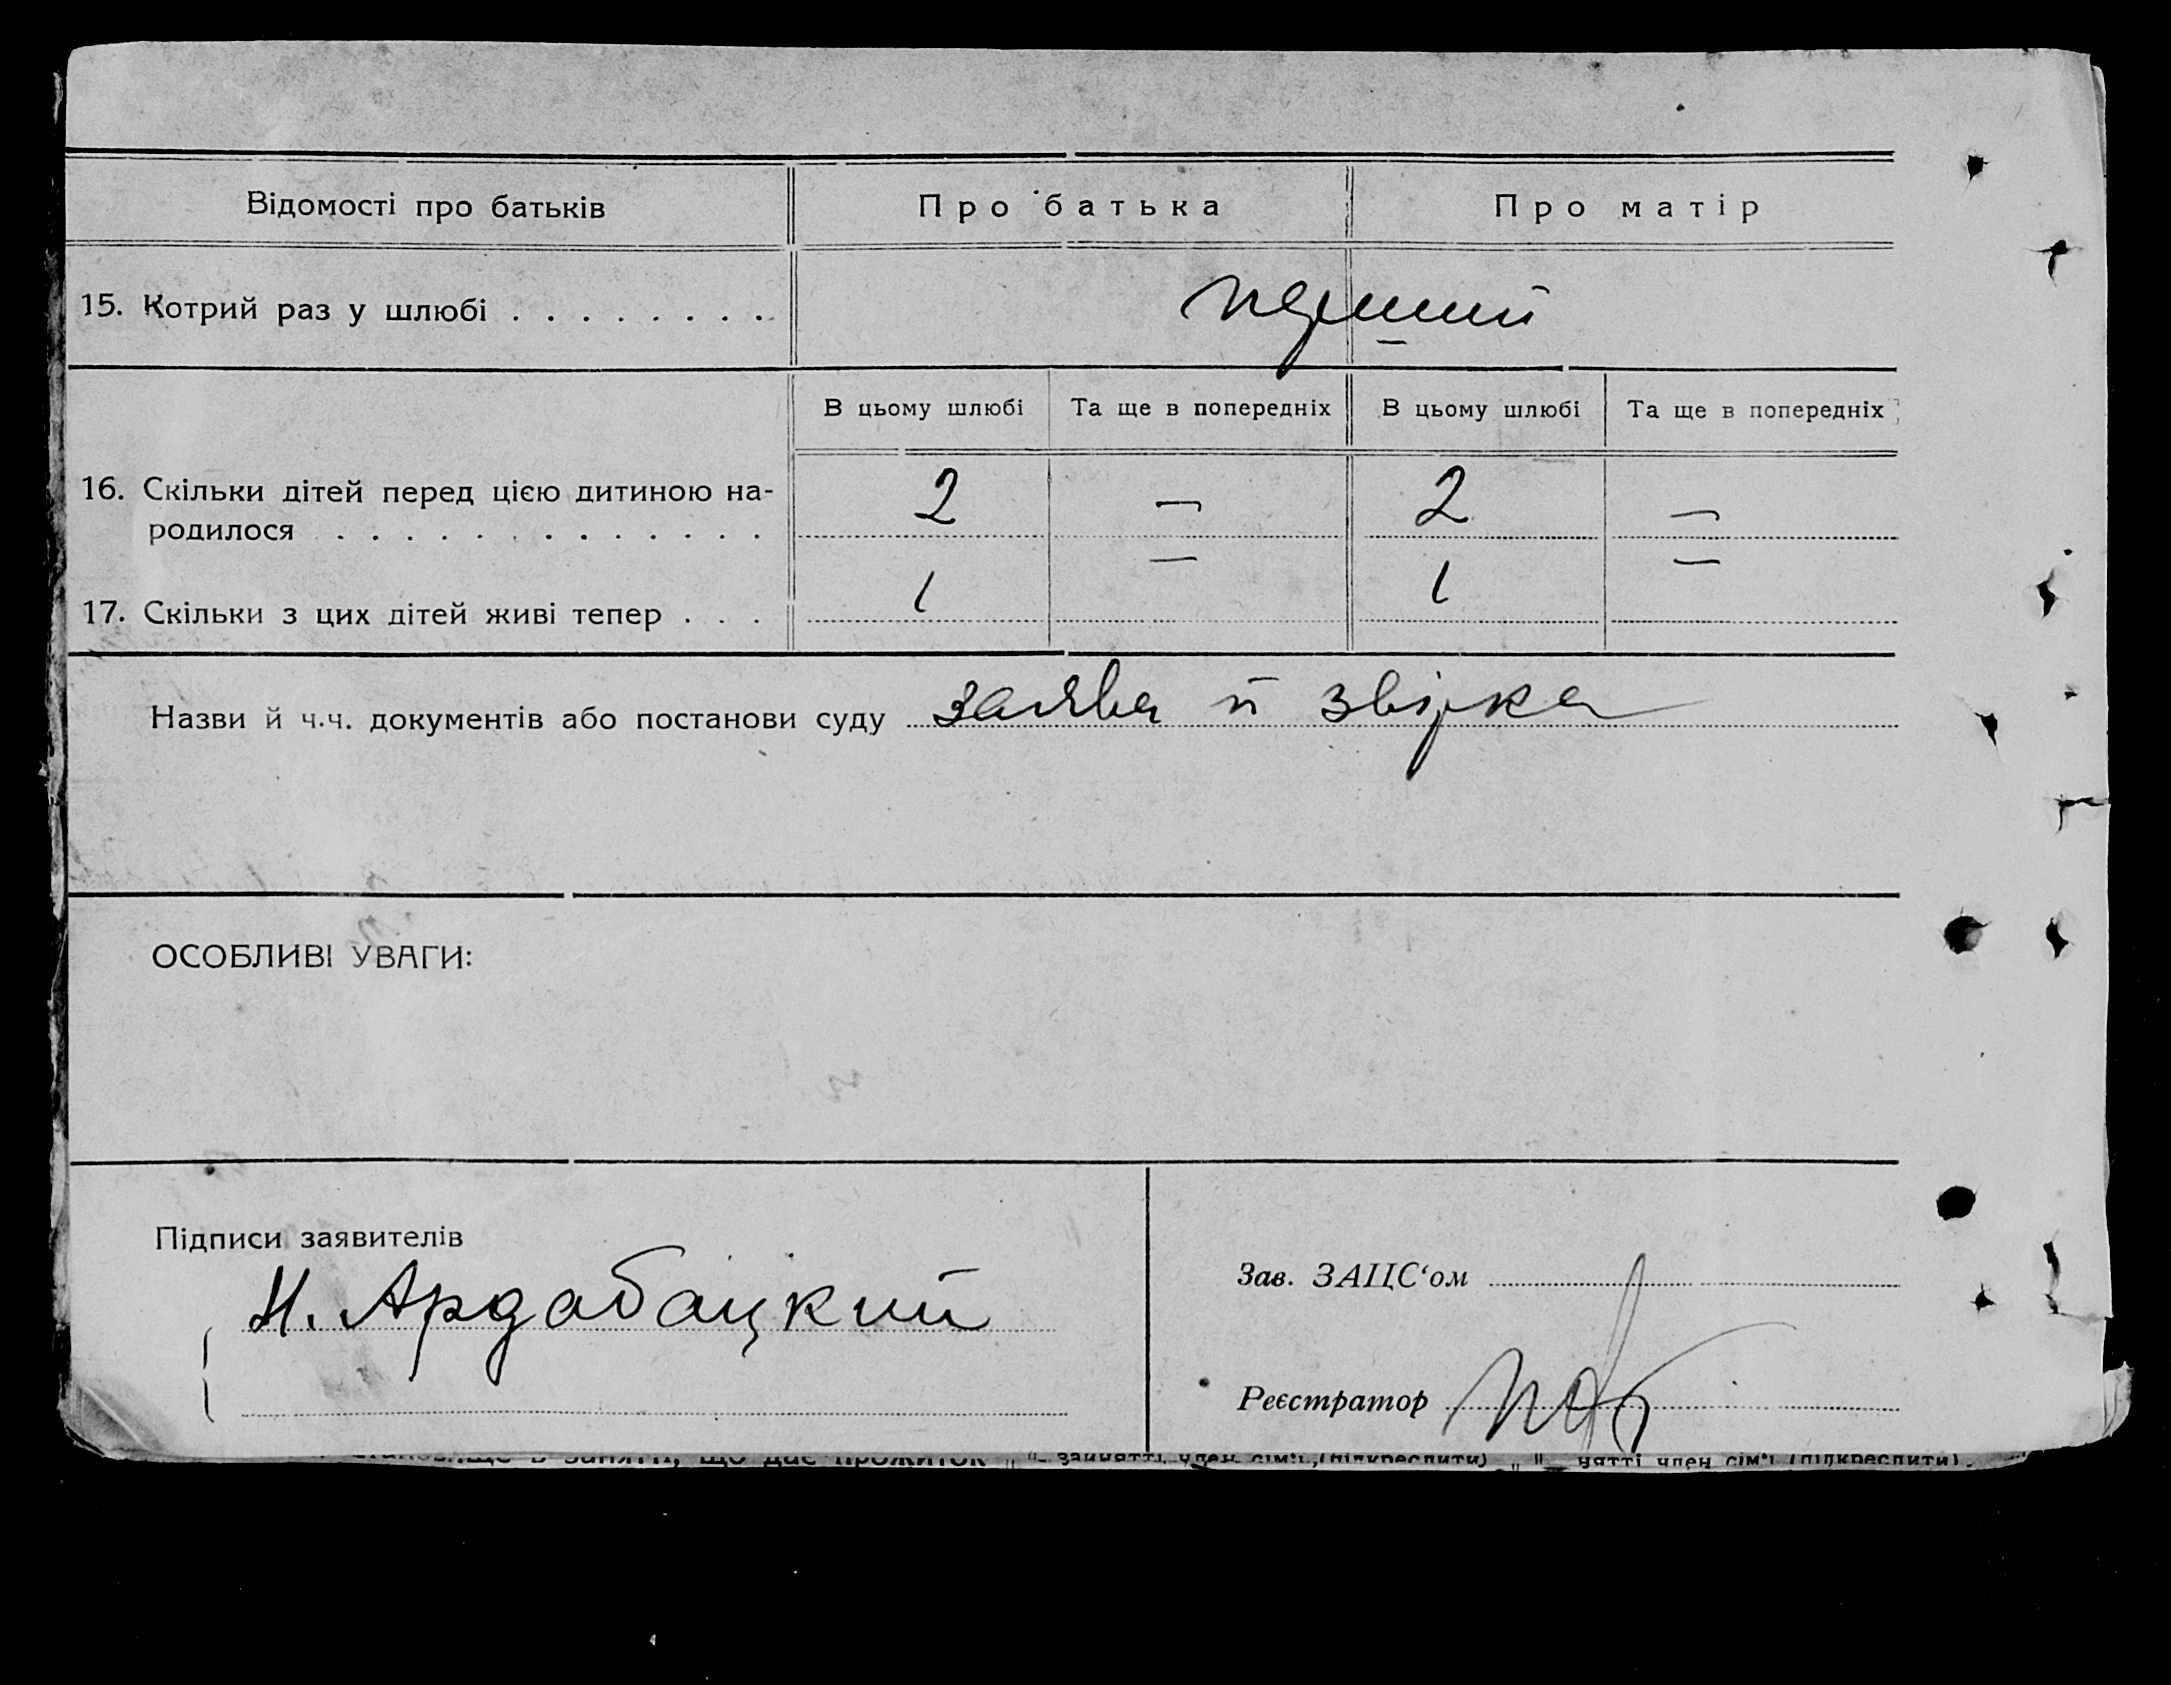 Відомості про батьків Про батька Про матір
15. Котрий раз у шлюбі . . . . . . . . перший
В цьому шлюбі Та ще в попередніх В цьому шлюбі Та ще в попередніх
16. Скільки дітей перед цією дитиною на- 2 — 2 —
родилося . . . . . . . . . . . . .
17. Скільки з цих дітей живі тепер . . . 1 — 1 —
Назви й ч.ч. документів або постанови суду заява й звірка
ОСОБЛИВІ УВАГИ:
Підписи заявителів
Н. Ардабацкий
Зав. ЗАЦС‘ом
Реєстратор
що дає прожиток „ зайнятті член сім'ї (підкреслити) „ нятті член сім'ї (підкреслити).